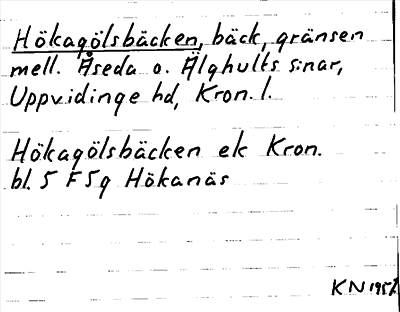 Hökagölsbäcken, bäck, gränsen
mell. Åseda o. Älghults s:nar,
Uppvidinge hd, Kron. l.
Hökagölsbäcken ek Kron.
bl. 5 F 5g Hökanäs
KN 1957